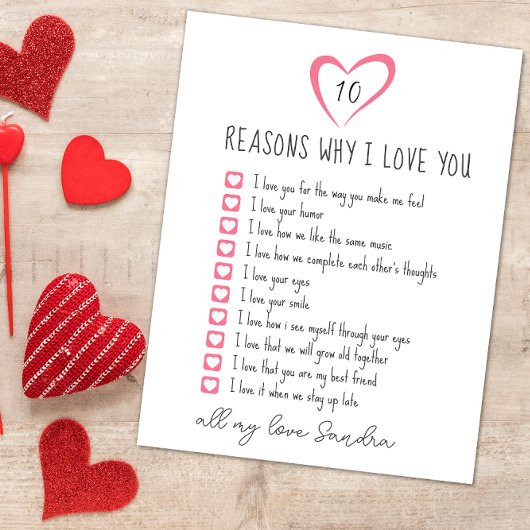 10
REASONS WHY I LOVE YOU
I love you for the way you make me feel
I love your humor
I love how we like the same music
I love how we complete each other's thoughts
I love your eyes
I love your smile
I love how i see myself through your eyes
I love that we will grow old together
I love that you are my best friend
I love it when we stay up late
all my love Sandra